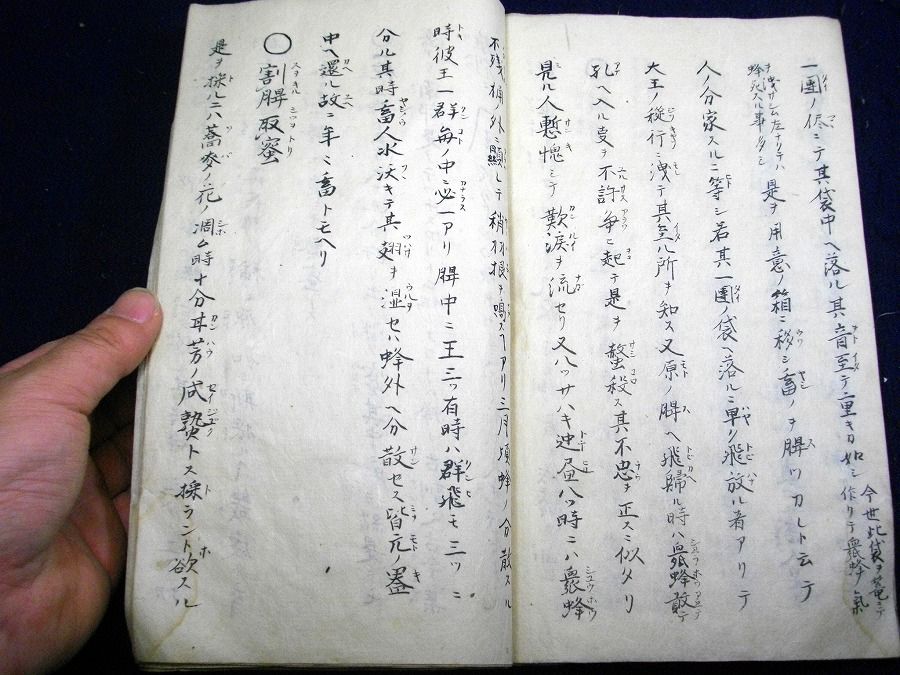 一團ノ侭ニテ其袋中ヘ落ル其音至テ重キカ如シ
今世此袋ヲ篭ニテ
作リテ蜂
蜂死スル事多シ
是ヲ用意ノ箱ニ移シ畜ノヲ脾ツカレト云テ
人ノ分家スルニ等シ若其一團ノ袋ヘ落ルニ早ク飛放ル者アリテ
大王ノ從行ニ洩テ其至ル所ヲ知ス又原ノ脾ヘ飛歸ル時ハ衆蜂敢テ
孔ヘ入ル叓ヲ不許争ヒ起テ是ヲ螫殺ス其不忠ヲ正スニ似タリ
見ル人慙愧シテ歎涙ヲ流セリ又八ッサハキ迚昼八ッ時ニハ衆蜂
不残桶外ニ顕レテ稍羽根ヲ鳴ス アリ三月頃蜂ノ分散スル
時彼王一群毎ノ中ニ必一アリ脾中ニ王三ッ有時ハ群飛モ三ッニ
分ル其時畜人水沃キテ其翅ヲ湿セハ蜂外ヘ分散セス皆元ノ器
中ヘ還ル故ニ年々畜トモヘリ
○割脾取蜜
是ヲ採ルニハ蕎麥ノ花ノ凋ム時十分甘芳ノ成贄トス採ラント欲スル